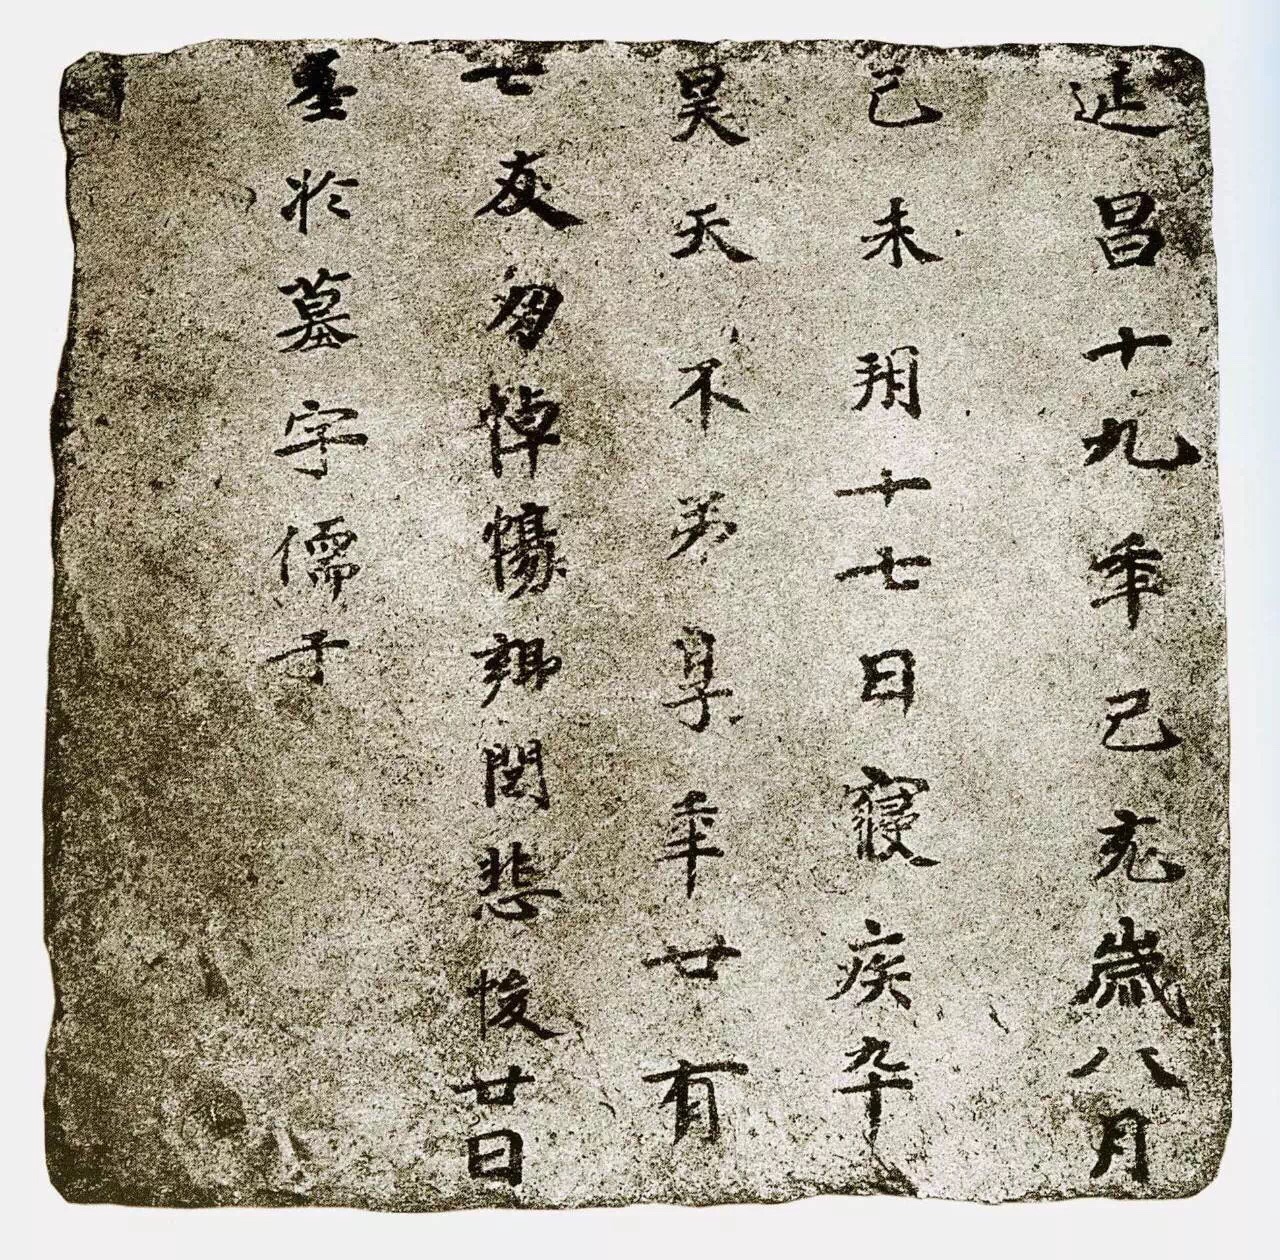 延昌十九年己亥歲八月
己未朔十七日寢疾卒
昊天不弔享年廿有
七友朋悼愓鄰閔悲悛廿日
於墓字儒子